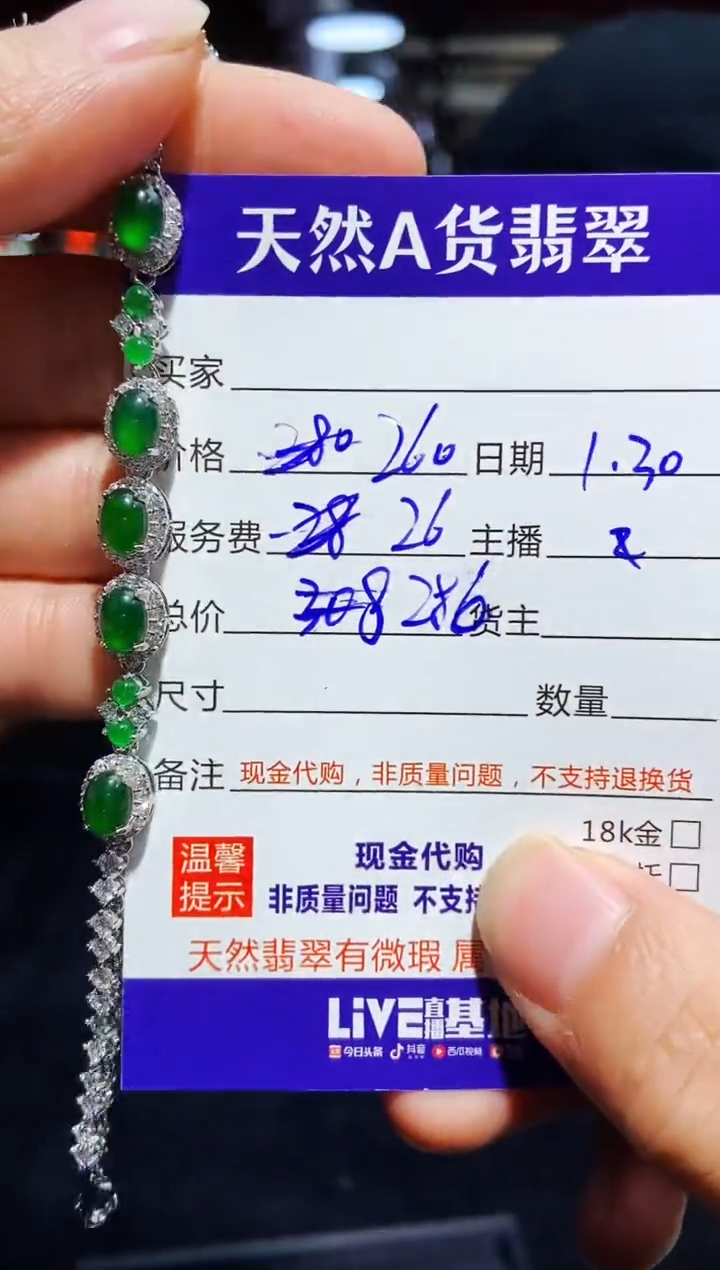 天然A货翡翠
买家
价格 280 260 日期 1.30
服务费 28 26 主播
总价 308 286 货主
尺寸 数量
备注 现金代购，非质量问题，不支持退换货
18k金
温馨提示 现金代购
非质量问题 不支持
天然翡翠有微瑕 属
LiVE直播基地
今日头条 抖音 西瓜视频